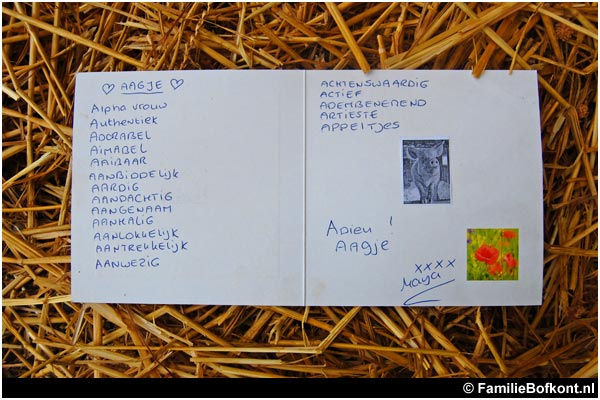 ♡ AAGJE ♡
Alpha vrouw
Authentiek
ADORABEL
AIMABEL
AAIBAAR
AANBIDDELIJK
AARDIG
AANDACHTIG
AANGENAAM
AANHALIG
AANLOKKELIJK
AANTREKKELIJK
AANWEZIG
ACHTENSWAARDIG
ACTIEF
ADEMBENEMEND
ARTIESTE
APPELTJES
ADIEU !
AAGJE
xxxx
Maya
© FamilieBofkont.nl